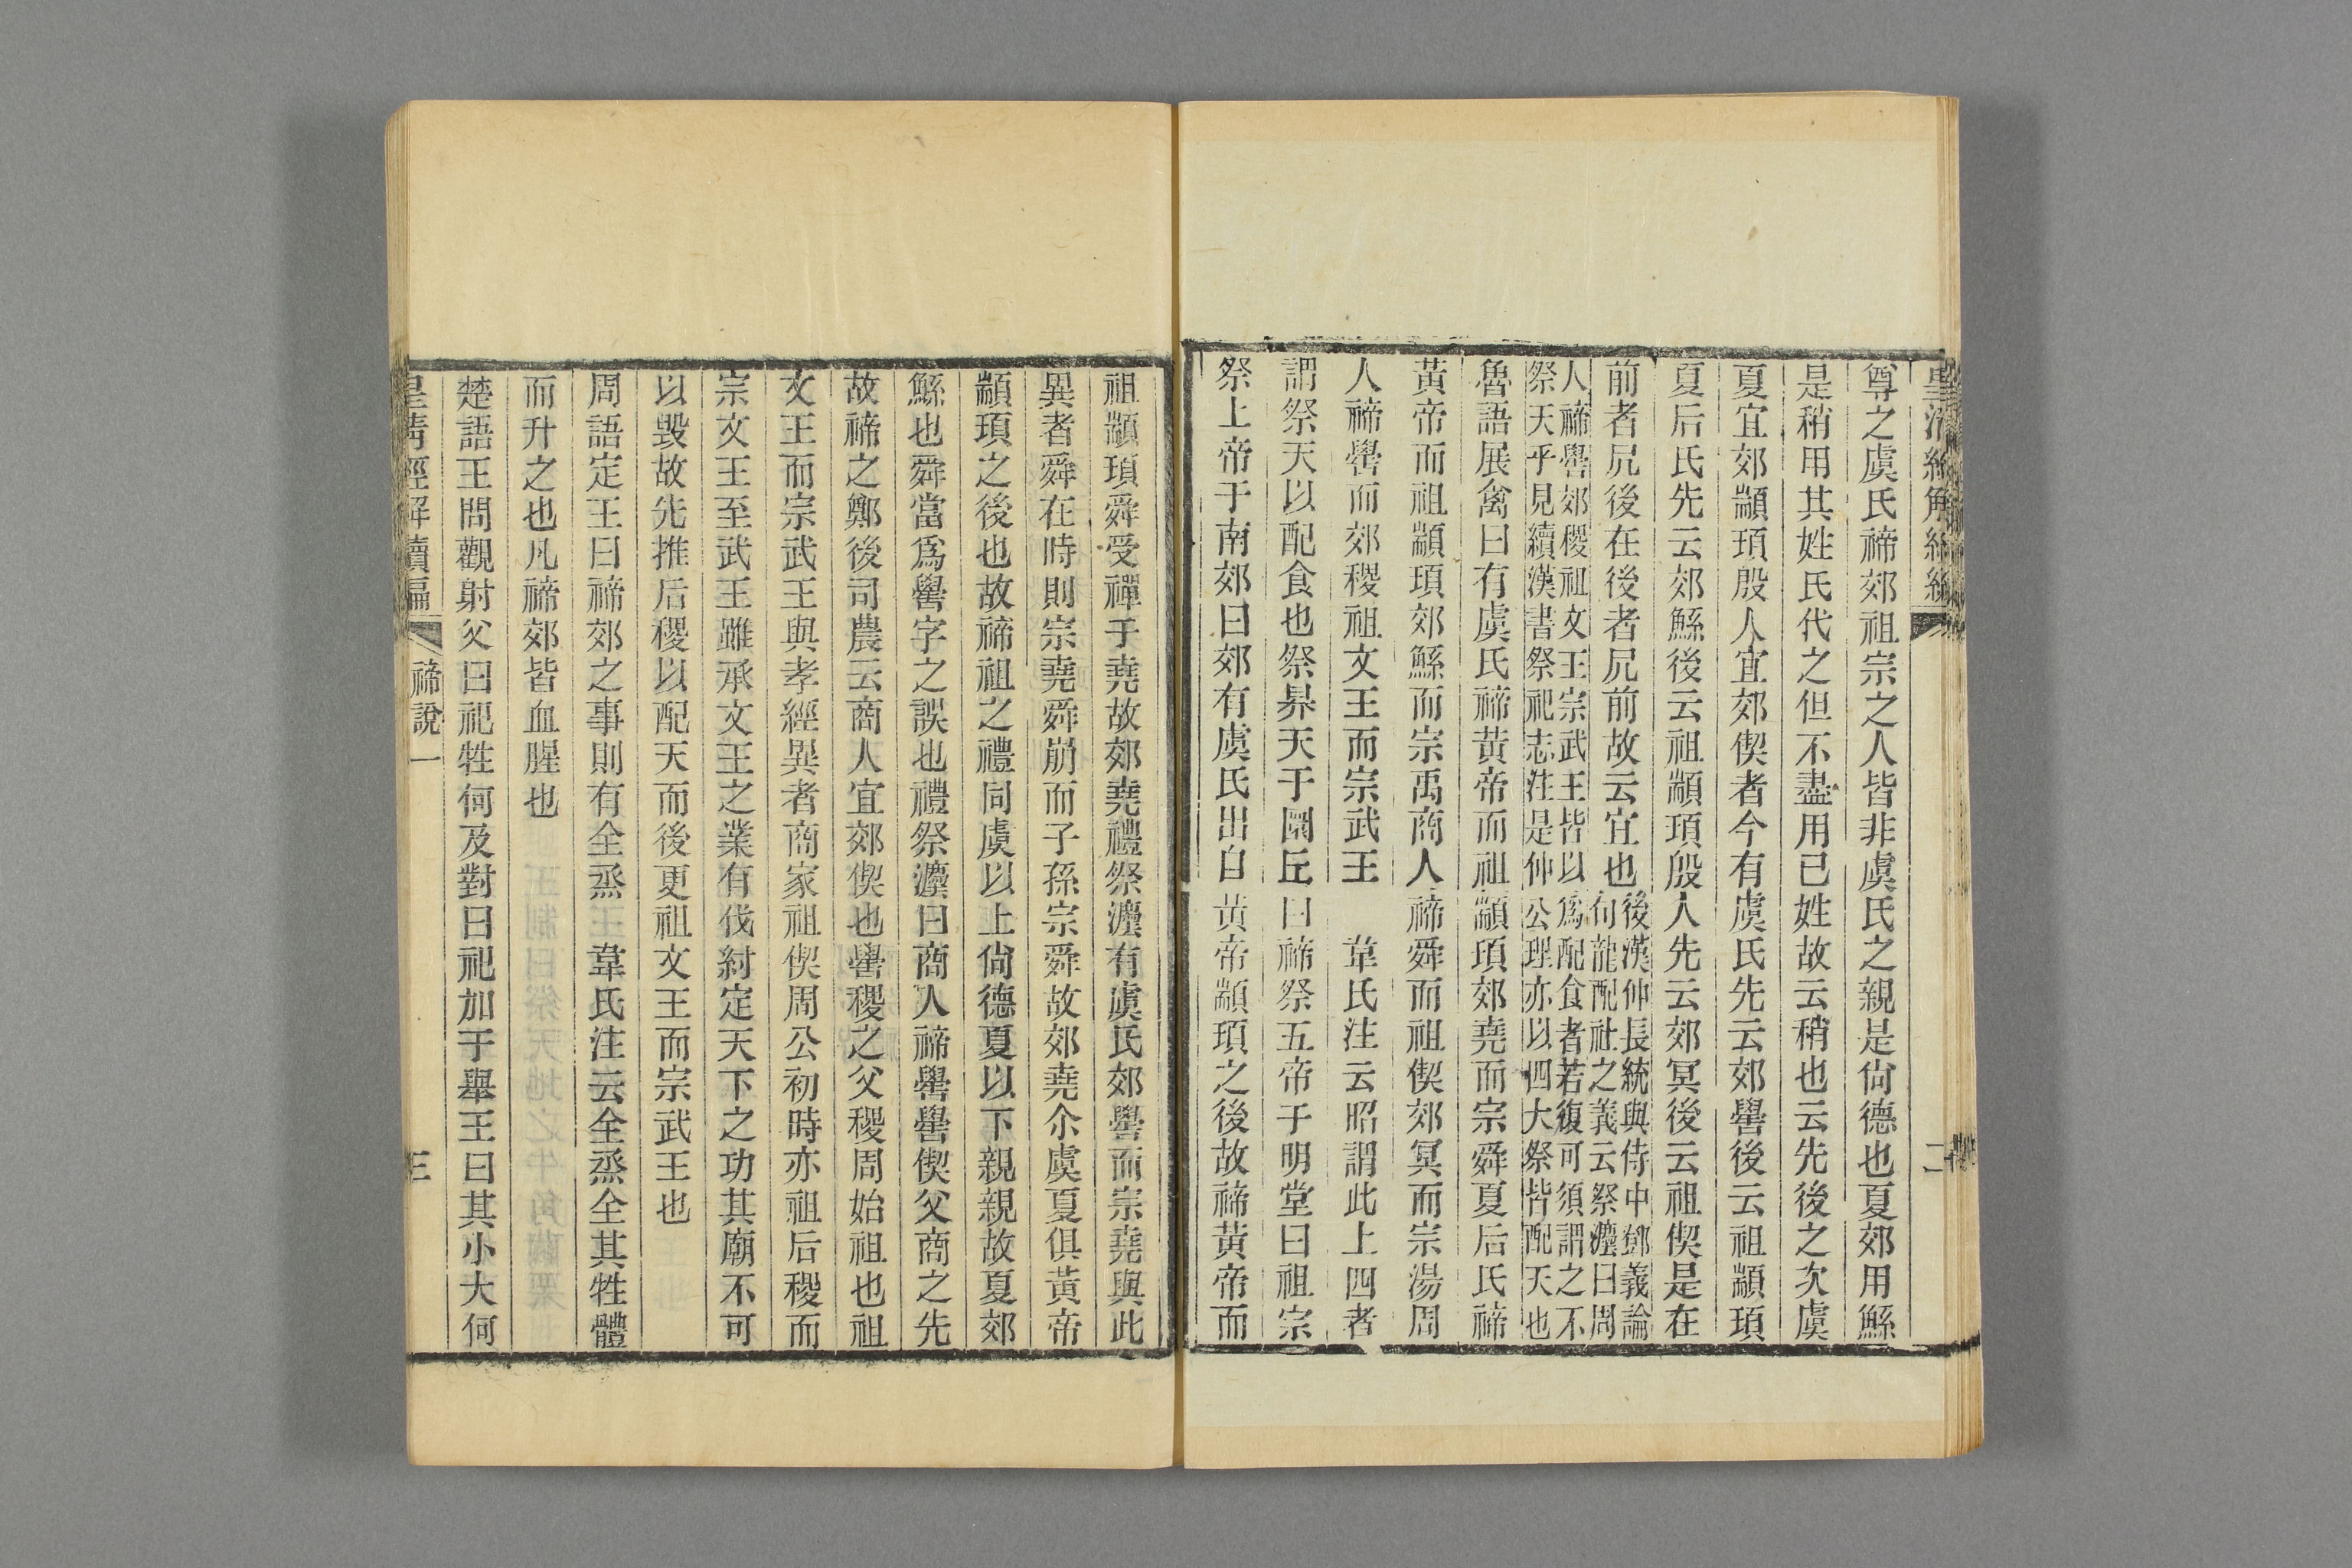 尊之虞氏禘郊祖宗之人皆非虞氏之親是尙德也夏郊用鯀
是稍用其姓氏代之但不盡用已姓故云稍也云先後之次虞
夏宜郊顓頊殷人宜郊偰者今有虞氏先云郊嚳後云祖顓頊
夏后氏先云郊鯀後云祖顓頊殷人先云郊冥後云祖偰是在
前者凥後在後者凥前故云宜也後漢仲長統與侍中鄧義論
句龍配社之義云祭灋曰周
人禘嚳郊稷祖文王宗武王皆以爲配食者若復可須謂之不
祭天乎見續漢書祭祀志注是仲公理亦以四大祭皆配天也
魯語展禽曰有虞氏禘黃帝而祖顓頊郊堯而宗舜夏后氏禘
黃帝而祖顓頊郊鯀而宗禹商人禘舜而祖偰郊冥而宗湯周
人禘嚳而郊稷祖文王而宗武王 韋氏注云昭謂此上四者
謂祭天以配食也祭昦天于圜丘曰禘祭五帝于明堂曰祖宗
祭上帝于南郊曰郊有虞氏出自黃帝顓頊之後故禘黃帝而
祖顓頊舜受禪于堯故郊堯禮祭灋有虞氏郊嚳而宗堯與此
異者舜在時則宗堯舜崩而子孫宗舜故郊堯尒虞夏俱黃帝
顓頊之後也故禘祖之禮同虞以上尙德夏以下親親故夏郊
鯀也舜當爲嚳字之誤也禮祭灋曰商人禘嚳嚳偰父商之先
故禘之鄭後司農云商人宜郊偰也嚳稷之父稷周始祖也祖
文王而宗武王與孝經異者商家祖偰周公初時亦祖后稷而
宗文王至武王雖承文王之業有伐紂定天下之功其廟不可
以毁故先推后稷以配天而後更祖文王而宗武王也
周語定王曰禘郊之事則有全烝 韋氏注云全烝全其牲體
而升之也凡禘郊皆血腥也
楚語王問觀射父曰祀牲何及對曰祀加于舉王曰其小大何
皇清經解續編 禘說一 三